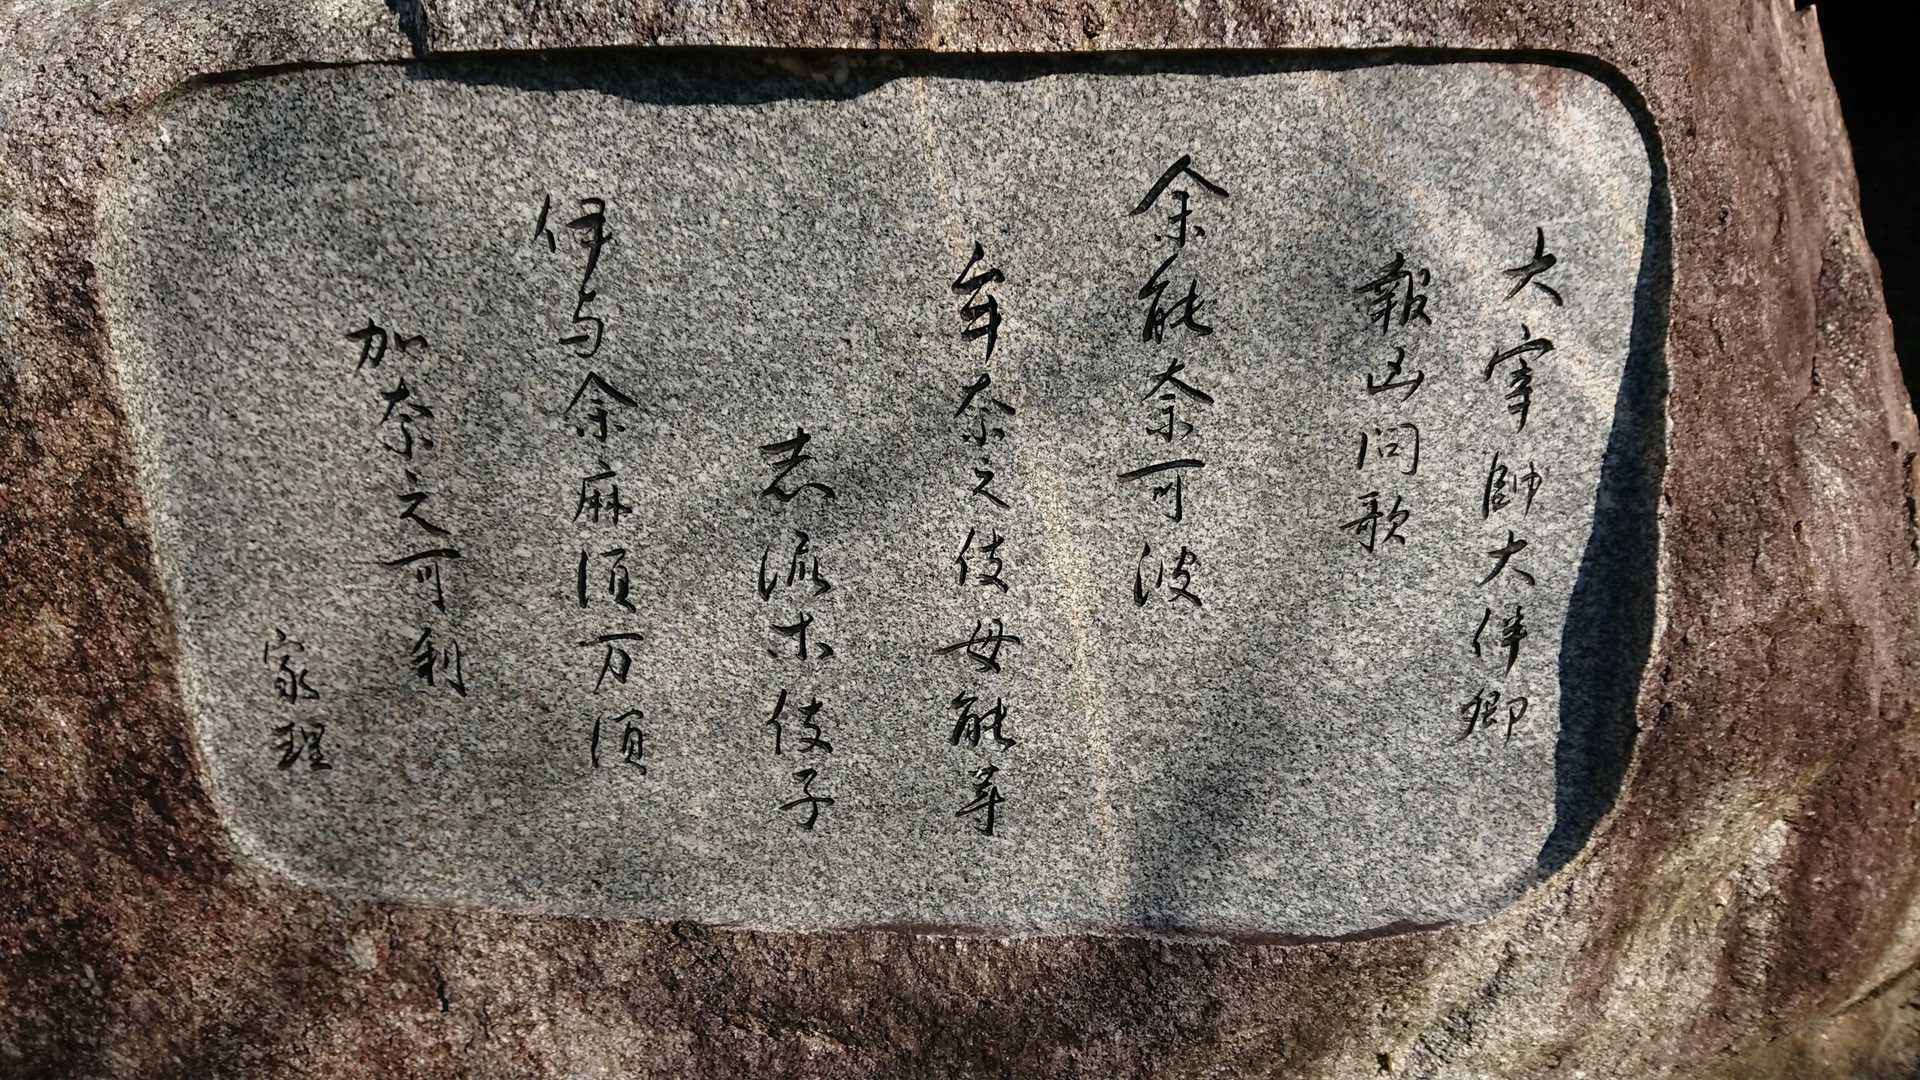 大宰帥大伴卿
報凶問歌
余能奈可波
牟奈之伎母能等
志流等伎子
伊与余麻須万須
加奈之可利
家理